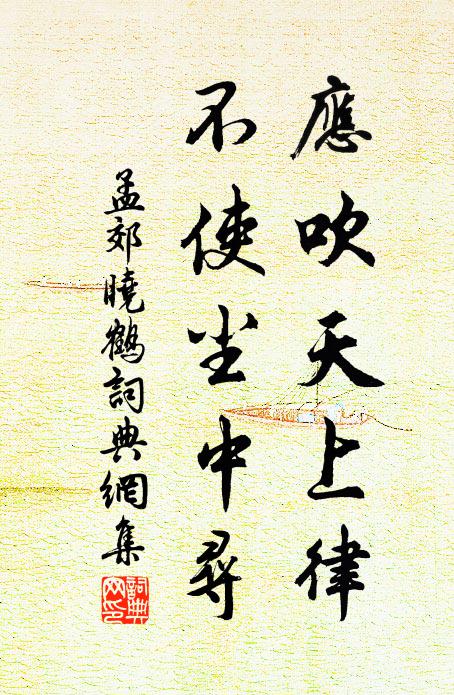 應吹天上律
不使尘中尋
孟郊曉鶴詞典網集
詞典网印